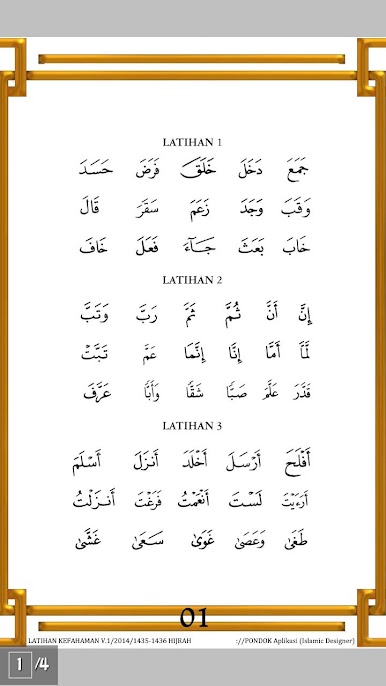 LATIHAN 1
جَمَعَ دَخَلَ خَلَقَ فَرَضَ حَسَدَ
وَقَبَ وَجَدَ زَعَمَ سَقَرَ قَالَ
خَابَ بَعَثَ جَآءَ فَعَلَ خَافَ
LATIHAN 2
إِنَّ أَنَّ ثُمَّ ثَمَّ رَبَّ وَتَبَّ
لَمَّا أَمَّا إِنَّا إِنَّمَا عَمَّ تَبَّتْ
قَدَّرَ عَلَّمَ صَبًّا شَقًّا وَأَبًّا عَرَّفَ
LATIHAN 3
أَفْلَحَ أَرْسَلَ أَخْلَدَ أَنزَلَ أَسْلَمَ
أَرَءَيْتَ لَسْتَ أَنْعَمْتَ فَرَغْتَ أَنزَلْتُ
طَغَىٰ وَعَصَىٰ غَوَىٰ سَعَىٰ غَشَّىٰ
01
LATIHAN KEFAHAMAN V.1/2014/1435-1436 HIJRAH ://PONDOK Aplikasi (Islamic Designer)
1 /4